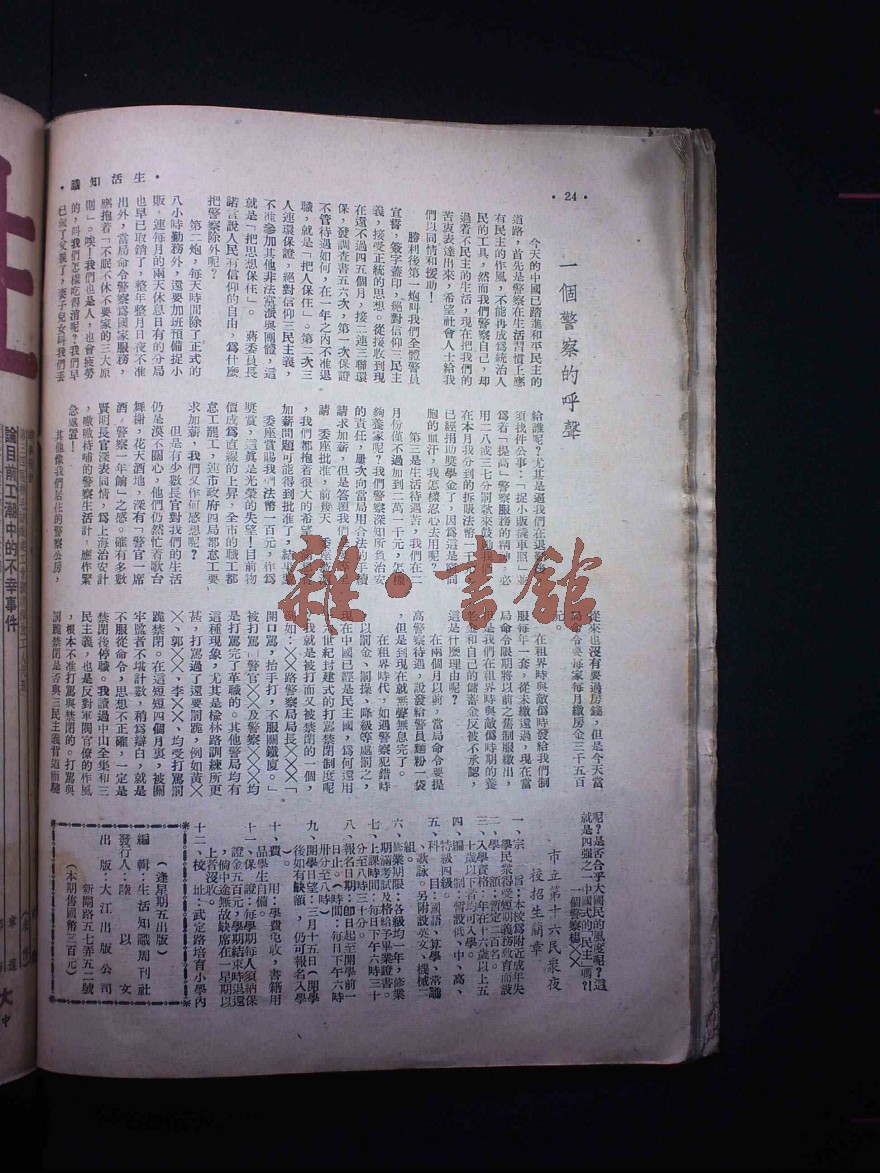 ·24·
生活知識·
一個警察的呼聲
今天的中國已踏進和平民主的
道路，首先是警察在生活習慣上應
有民主的作風，不能再成爲統治人
民的工具，然而我們警察自己，却
過着不民主的生活，現在把我們的
苦衷表達出來，希望社會人士給我
們以同情和援助！
勝利後第一炮叫我們全體警員
宣誓，簽字蓋印，絕對信仰三民主
義，接受正統的思想。從接收到現
在還不過四五個月，接二連三聯環
保，發調查書五六次，第一次保證
不管待遇如何，在一年之內不准退
職，就是「把人保住」。第二次三
人連環保證，絕對信仰三民主義，
不准參加其他非法黨派與團體，這
就是「把思想保住」。蔣委員長
諾言說人民有信仰的自由，爲什麽
把警察除外呢？
第二炮，每天時間除了正式的
八小時勤務外，還要加班預備捉小
販，連每月的兩天休息日有的分局
也早已取銷了，整年整月日夜不准
出外，當局命令警察爲國家服務，
應抱着「不眠不休不要家的三大原
則」。唉！我們也是人，也會疲勞
的，叫我們怎樣吃得消呢？我們早
已 了 ，妻子兒女叫我們丟
給誰呢？尤其是逼我們在退勤時
須找件公事：「捉小販機車照」並
爲着「提高」警察服務的精神，必
用二八或三七分罰款來鼓勵我們
在本月我分到的拆賬法幣一千
已經捐助獎學金了，因爲這是同
胞的血汗，我怎樣忍心去用呢？
第三是生活待遇苦，我們在二
月份僅不過加到二萬一千元，怎樣
夠養家呢？我們警察深知所負治安
的責任，屢次向當局用合法手續
請求加薪，但是答覆我們
請 委座批准，前幾天 委座
，我們都抱着很大的希望，
加薪問題可能得到批准了，結果
委座賞賜我們法幣一百元，作爲
獎賞，這眞是光榮的失望！目前物
價成爲直線的上昇，全市的職工都
怠工罷工，連市政府四局都怠工要
求加薪，我們又作何感想呢？
但是有少數長官對我們的生活
仍是漠不關心，他們仍然忙着歌台
舞榭，花天酒地，深有「警官一席
酒，警察一年餉」之感。確有多數
賢明長官深表同情，爲上海治安計
，嗷嗷待哺的警察生活計，應作緊
急處置！
其他像我們居住的警察公房，
從來也沒有要過房錢，但是今天當
局命令要每家每月繳房金三千五百
元。
在租界時與敵僞時發給我們制
服每年一套，從未繳還過，現在當
局命令限期將以前之舊制服繳出，
但是我們在租界時與敵僞時期的養
老金和自己的儲蓄金反被不承認，
這是什麼理由呢？
在兩個月以前，當局命令要提
高警察待遇，說發給警員麵粉一袋
，但是到現在就無聲無息完了。
在租界時代，如遇警察犯錯時
以罰金、罰操、降級等處罰之，
現在中國已經是民主國，爲何還用
十六世紀封建式的打罵禁閉制度呢
？我就是被打而又被禁閉的一個，
例如：××路警察局局長××「
開口罵，抬手打，不服關鐵廈。」
被打罵的警官××及警察×××均
是打罵完了革職的。其他警局均有
這種現象，尤其是楡林路訓練所更
甚，打罵過了還要罰跪，例如黃×
×、郭××、李××、均受打罵罰
跪禁閉。在這短短四個月裏，被關
牢監者不堪計數，稍爲辯白，就是
不服從命令，思想不正確，一定是
禁閉後停職。我讀過中山全集和三
民主義，也是反對軍閥官僚的作風
，根本不准打罵與禁閉的。打罵與
罰跪禁閉是否與三民主義背道而馳
呢？是否合乎大國民的風度呢？這
就是四強之一中國式的「民主」嗎？！
一個警察楊××
市立第十六民衆夜
校招生簡章
一、宗 旨：本校爲附近成年失
學民衆得受短期義務敎育而設
二、學 額：暫定二百名。
三、入學資格：年在十六歲以上五
十歲以下者均可入學。
四、編 制：暫設低、中、高、
特級四級。
五、科 目：國語、算學、常識
、歌詠。另附設英文、機械二
組。
六、修業期限：各級均一年，修業
期滿考試及格給予畢業證書。
七、上課時間：每日下午六時三十
分至八時三十分。
八、報名日期：卽日起至開學前一
日止。時間：每日下午六時
卅分至八時。
九、開學日望：三月十五日（開學
後如有缺額，仍可報名入學
）
十、費 用：學費免收，書籍用
品學生自備。
十一、保 證：每學期每人須納保
證金五百元，學期結束時退還
，倘中途無故缺席在一星期以
上者沒收。
十二、校 址：武定路培育小學內
（逢星期五出版）
編 輯：生活知識周刊社
發行人：陸 以 文
出 版：大江出版公司
新閘路五七弄五二號
（本期售國幣三百元）
論目前工潮中的不幸事件
雜·書館